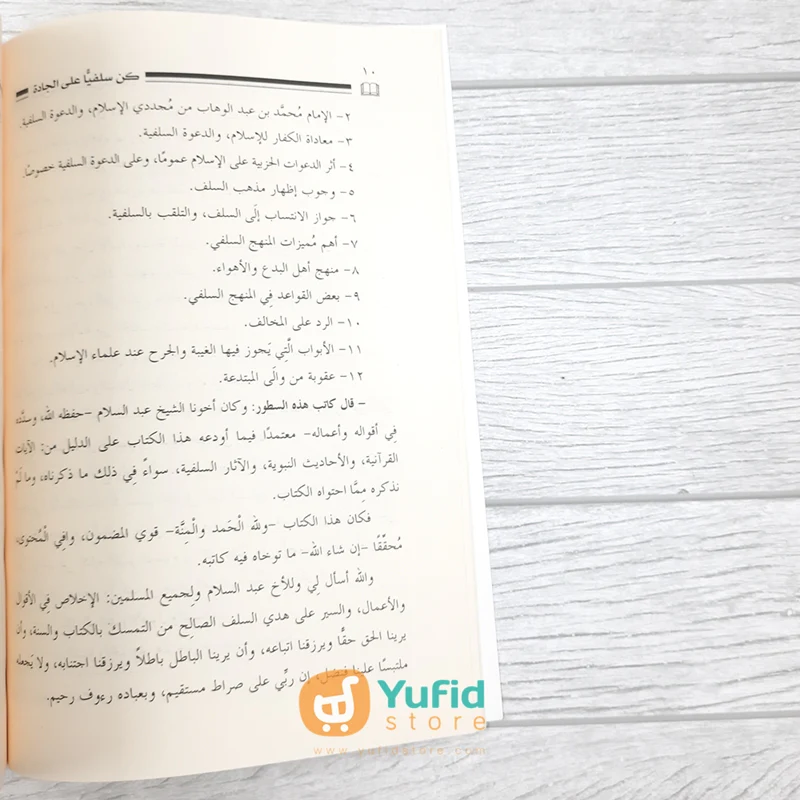 ١٠
كن سلفيًّا على الجادة
٢- الإمام مُحمَّد بن عبد الوهاب من مُجددي الإسلام، والدعوة السلفية.
٣- معاداة الكفار للإسلام، والدعوة السلفية.
٤- أثر الدعوات الحزبية على الإسلام عمومًا، وعلى الدعوة السلفية خصوصًا.
٥- وجوب إظهار مذهب السلف.
٦- جواز الانتساب إلَى السلف، والتلقب بالسلفية.
٧- أهم مُميزات المنهج السلفي.
٨- منهج أهل البدع والأهواء.
٩- بعض القواعد فِي المنهج السلفي.
١٠- الرد على المخالف.
١١- الأبواب الَّتِي يَجوز فيها الغيبة والجرح عند علماء الإسلام.
١٢- عقوبة من والَى المبتدعة.
- قال كاتب هذه السطور: وكان أخونا الشيخ عبد السلام -حفظه الله، وسدَّده
فِي أقواله وأعماله- معتمدًا فيما أودعه هذا الكتاب على الدليل من: الآيات
القرآنية، والأحاديث النبوية، والآثار السلفية، سواءً فِي ذلك ما ذكرناه، وما لَمْ
نذكره مِمَّا احتواه الكتاب.
فكان هذا الكتاب -ولله الْحَمد والْمِنَّة- قوي المضمون، وافِي الْمُحتوى،
مُحقِّقًا -إن شاء الله- ما توخاه فيه كاتبه.
والله أسأل لِي وللأخ عبد السلام ولِجميع المسلمين: الإخلاص فِي الأقوال
والأعمال، والسير على هدي السلف الصالِح من التمسك بالكتاب والسنة، وأن
يرينا الحق حقًّا ويرزقنا اتباعه، وأن يرينا الباطل باطلاً ويرزقنا اجتنابه، ولا يَجعله
ملتبسًا علينا فنضل، إن ربِّي على صراط مستقيم، وبعباده رءوف رحيم.
Yufid
store
www.yufidstore.com